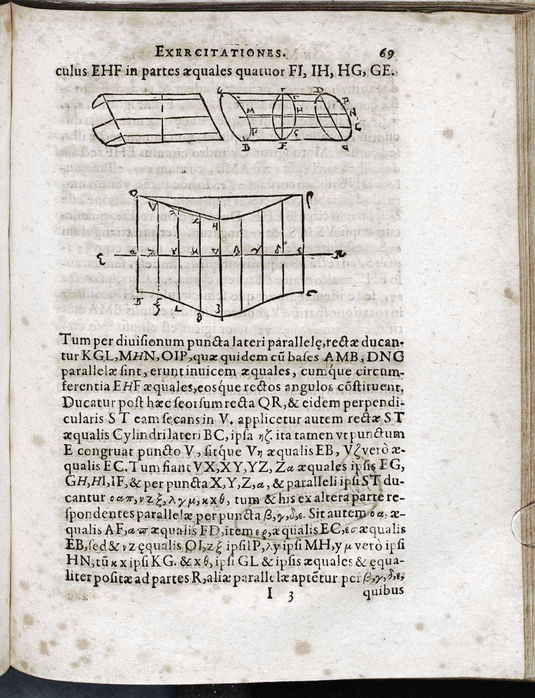 EXERCITATIONES. 69
culus EHF in partes æquales quatuor FI, IH, HG, GE.
Tum per diuisionum puncta lateri parallelę, rectæ ducan-
tur KGL, MHN, OIP, quæ quidem cū bases AMB, DNC
parallelæ sint, erunt inuicem æquales, cumq́ue circum-
ferentia EHF æquales, eosque rectos angulos cōstituent.
Ducatur post hæc seorsum recta QR, & eidem perpendi-
cularis ST eam secans in V. applicetur autem rectæ ST
æqualis Cylindri lateri BC, ipsa ηζ. ita tamen vt punctum
E congruat puncto V, sitq́ue Vη æqualis EB, Vζ verò æ-
qualis EC. Tum fiant VX, XY, YZ, Zα æquales ipsis FG,
GH, HI, IF, & per puncta X, Y, Z, α, & paralleli ipsi ST du-
cantur οαπ, νzξ, λγμ, κxθ, tum & his ex altera parte re-
spondentes parallelæ per puncta β, γ, δ, ε. Sit autem οα, æ-
qualis AF, απ æqualis FD, item ερ, æqualis EC, εσ æqualis
EB, sed & νz ęqualis OI, zξ ipsi IP, λγ ipsi MH, yμ verò ipsi
HN, tū κx ipsi KG. & xθ, ipsi GL & ipsis æquales & ęqua-
liter positæ ad partes R, aliæ parallelæ aptētur per β, γ, δ, ε,
I 3 quibus